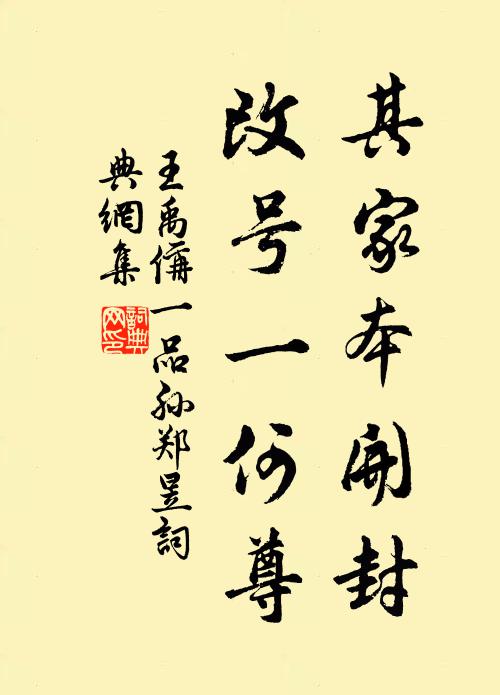 其家本開封
改号一何尊
王禹偁一品孙郑昱詞
典網集
詞典网印